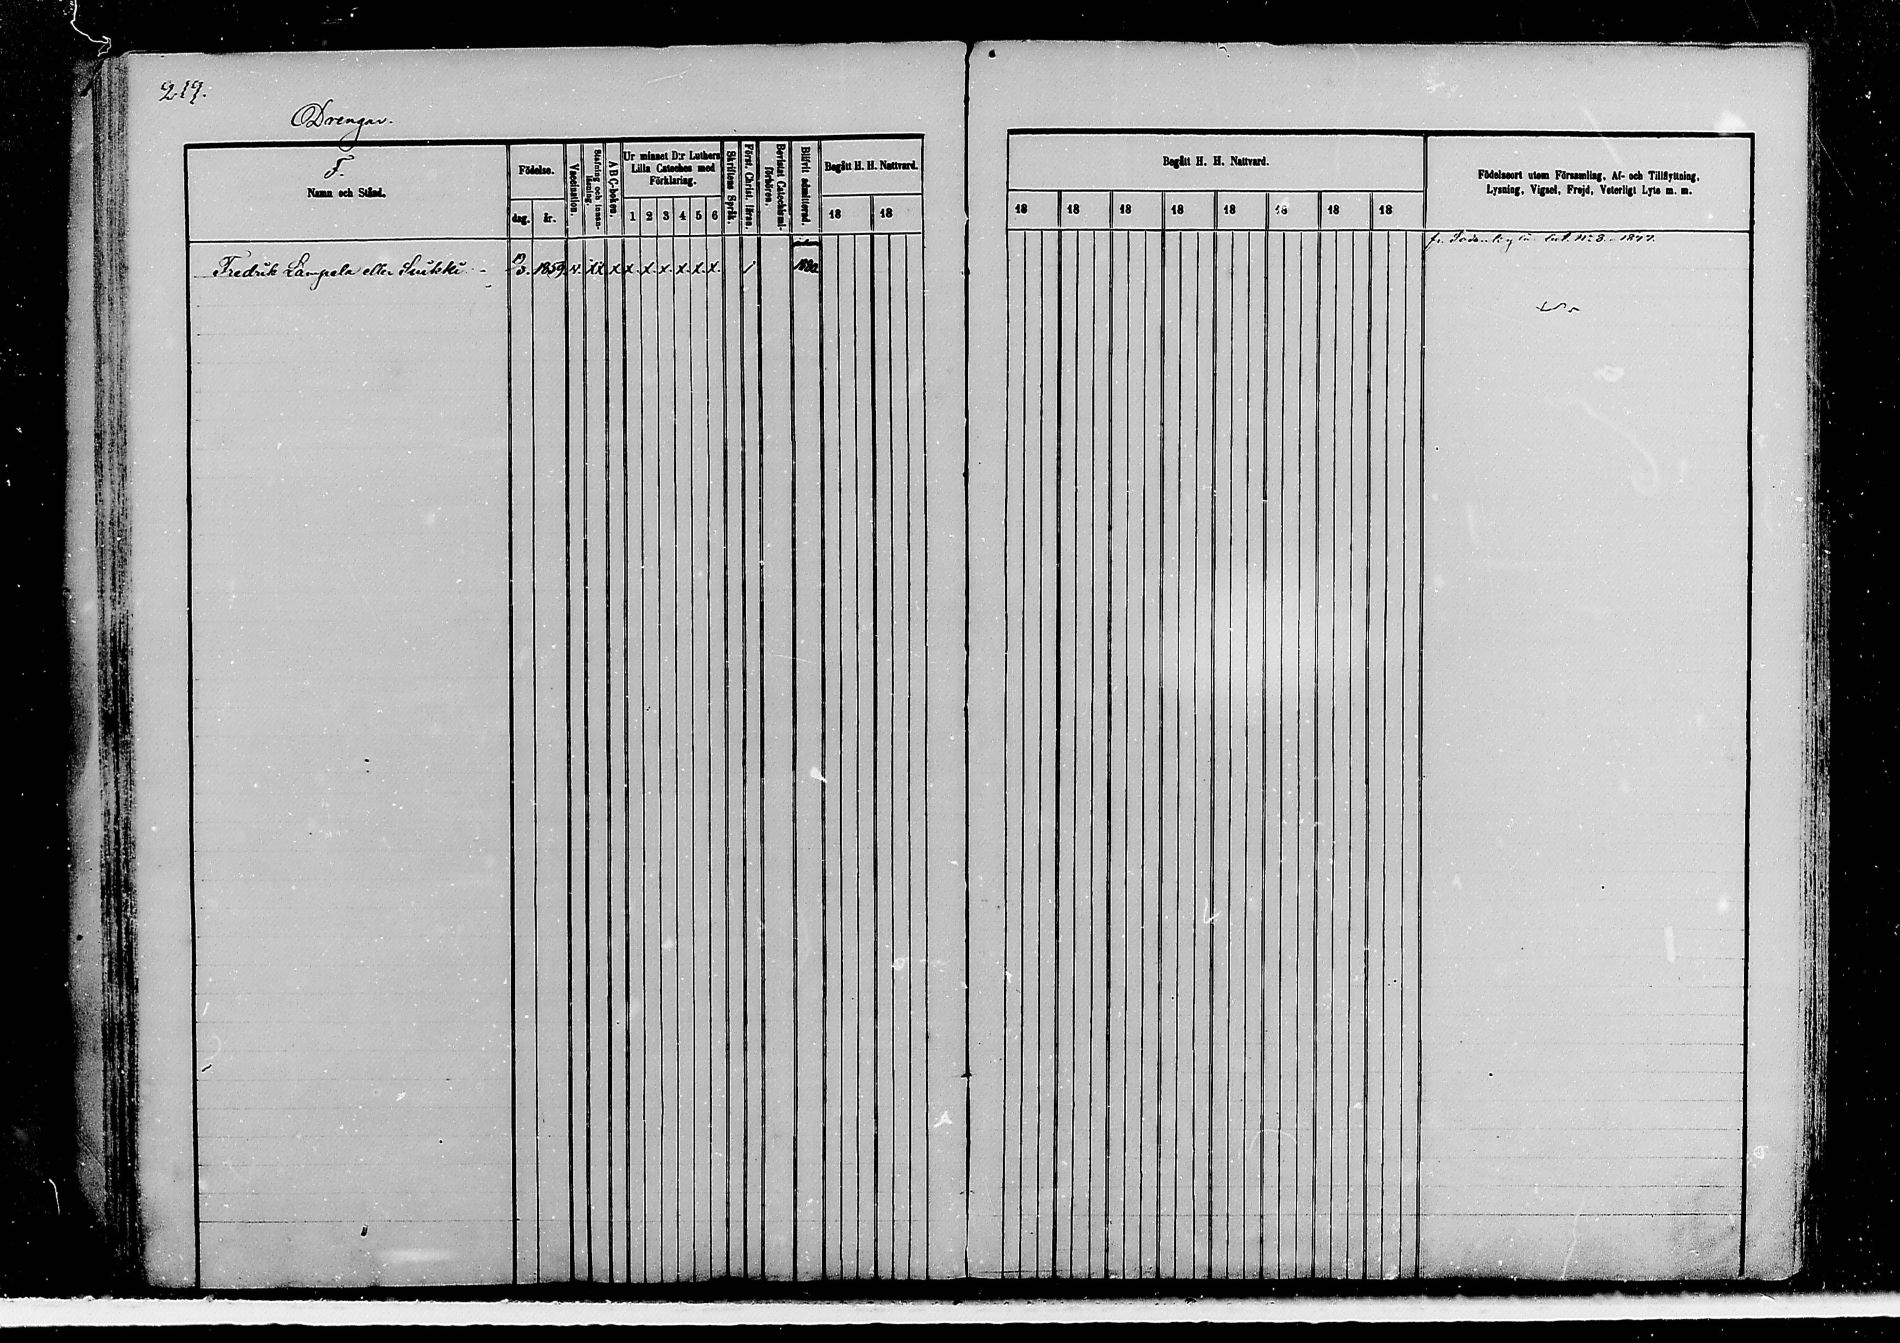 219.
Drengar.
F.
Namn och Stånd.
Födelse.
dag. år.
Vaccination.
Stafning och innan-läsning.
A B C-boken.
Ur minnet D:r Luthers
Lilla Cateches med
Förklaring.
1 2 3 4 5 6
Skriftens Språk.
Först. Christ. läran.
Bevistat Catechismi-förhören.
Blifvit admitterad.
Begått H. H. Nattvard.
18 18
Fredrik Lampela eller 19/3. 1859. v. xx x x. x. x. x. x. x. / 1880.
Begått H. H. Nattvard.
18 18 18 18 18 18 18 18
Födelseort utom Församling, Af- och Tillflyttning,
Lysning, Vigsel, Frejd, Veterligt Lyte m. m.
fr. bet. No 3. 1877.